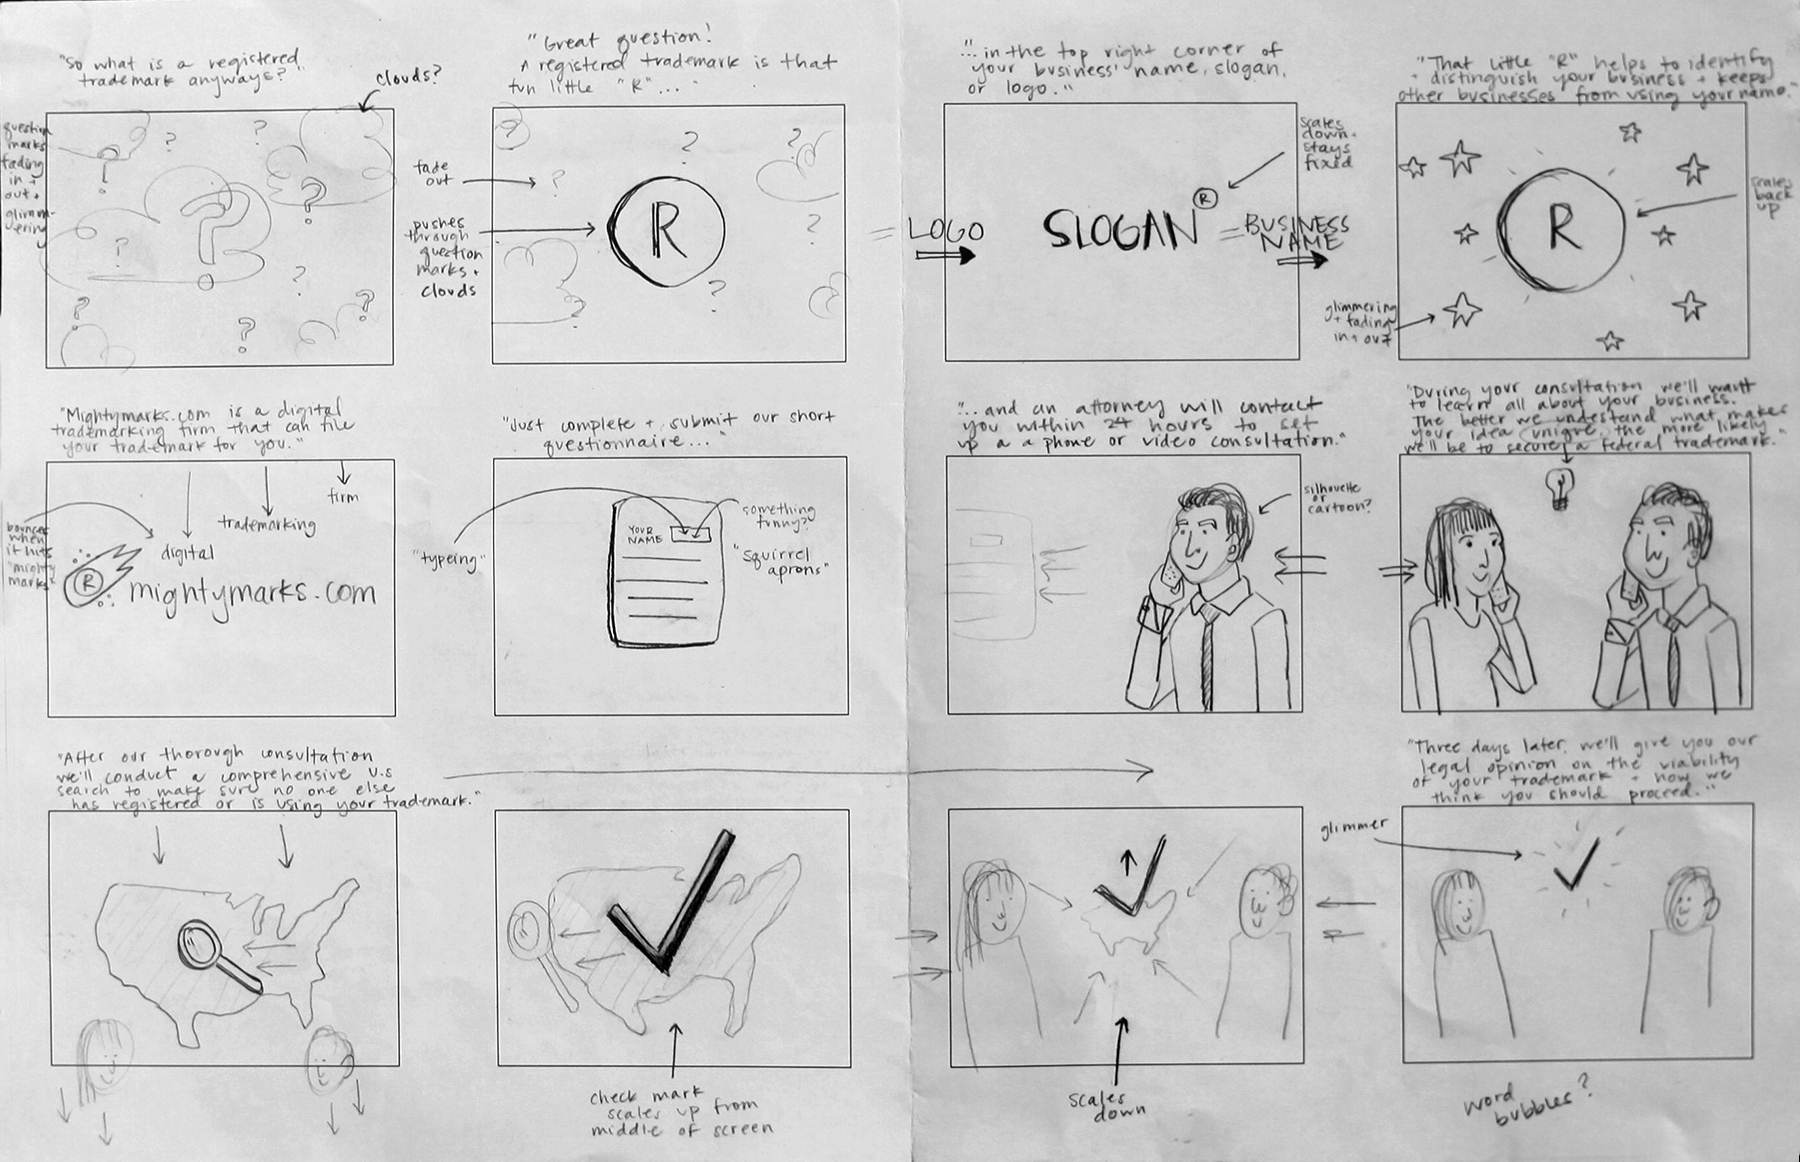 "So what is a registered
trademark anyways?"
clouds?
question
marks
fading
in +
out +
glimm-
ering
?
"Great question!
A registered trademark is that
fun little "R"...
fade
out
pushes
through
question
marks +
clouds
R
"... in the top right corner of
your business' name, slogan,
or logo."
scales
down -
stays
fixed
= LOGO
SLOGAN ®
= BUSINESS
NAME
"That little "R" helps to identify
+ distinguish your business + keeps
other businesses from using your name."
scales
back
up
R
glimmering
+ fading
in + out
"Mightymarks.com is a digital
trademarking firm that can file
your trademark for you."
firm
trademarking
digital
bounces
when
it hits
"mighty
marks"
®
mightymarks.com
"Just complete + submit our short
questionnaire..."
YOUR
NAME
something
funny?
"typeing"
"squirrel
aprons"
"... and an attorney will contact
you within 24 hours to set
up a a phone or video consultation."
silhouette
or
cartoon?
"During your consultation we'll want
to learn all about your business.
The better we undestand what makes
your idea unique, the more likely
we'll be to secure a federal trademark."
"After our thorough consultation
we'll conduct a comprehensive U.S
search to make sure no one else
has registered or is using your trademark."
check mark
scales up from
middle of screen
scales
down
"Three days later, we'll give you our
legal opinion on the viability
of your trademark + how we
think you should proceed."
glimmer
word
bubbles?